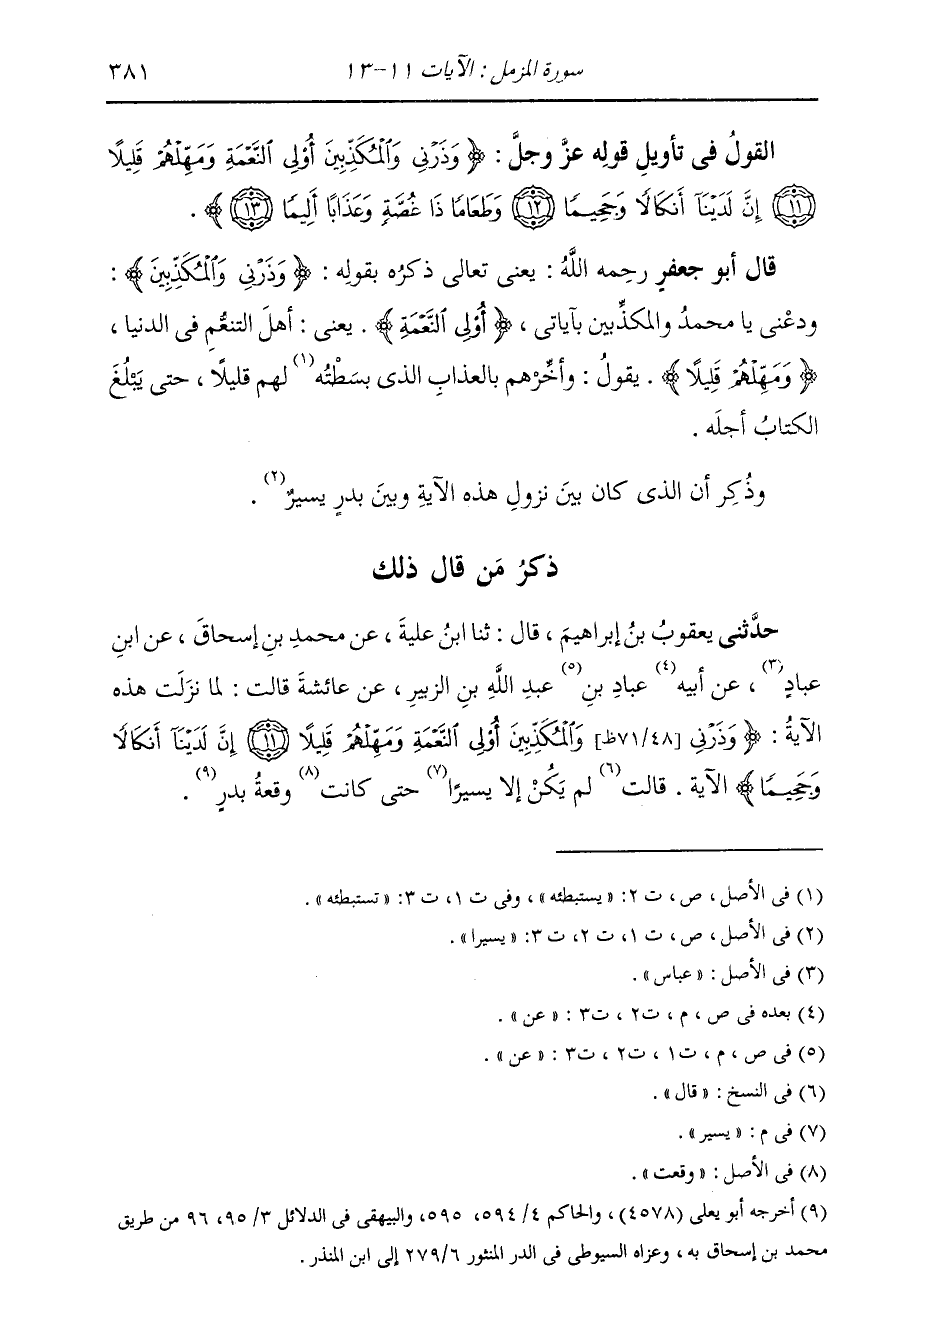 سورة المزمل : الآيات ١١-١٣ ٣٨١
القولُ فى تأويلِ قولِه عزَّ وجلَّ : ﴿ وَذَرْنِى وَٱلْمُكَذِّبِينَ أُوْلِى ٱلنَّعْمَةِ وَمَهِّلْهُمْ قَلِيلًا
﴿١١﴾ إِنَّ لَدَيْنَآ أَنكَالًا وَجَحِيمًا ﴿١٢﴾ وَطَعَامًا ذَا غُصَّةٍ وَعَذَابًا أَلِيمًا ﴿١٣﴾ ﴾ .
قال أبو جعفرٍ رحِمه اللَّهُ : يعنى تعالى ذكرُه بقولِه : ﴿ وَذَرْنِى وَٱلْمُكَذِّبِينَ ﴾ :
ودعْنى يا محمدُ والمكذِّبين بآياتى ، ﴿ أُوْلِى ٱلنَّعْمَةِ ﴾ . يعنى : أهلَ التنعُّمِ فى الدنيا ،
﴿ وَمَهِّلْهُمْ قَلِيلًا ﴾ . يقولُ : وأخِّرْهم بالعذابِ الذى بسَطْتُه(١) لهم قليلًا ، حتى يَبْلُغَ
الكتابُ أجلَه .
وذُكِر أن الذى كان بينَ نزولِ هذه الآيةِ وبينَ بدرٍ يسيرٌ(٢) .
ذكرُ مَن قال ذلك
حدَّثنى يعقوبُ بنُ إبراهيمَ ، قال : ثنا ابنُ عليةَ ، عن محمدِ بنِ إسحاقَ ، عن ابنِ
عبادٍ(٣) ، عن أبيه(٤) عبادِ بنِ(٥) عبدِ اللَّهِ بنِ الزبيرِ ، عن عائشةَ قالت : لما نزَلَت هذه
الآيةُ : ﴿ وَذَرْنِى [٧١/٤٨ظ] وَٱلْمُكَذِّبِينَ أُوْلِى ٱلنَّعْمَةِ وَمَهِّلْهُمْ قَلِيلًا ﴿١١﴾ إِنَّ لَدَيْنَآ أَنكَالًا
وَجَحِيمًا ﴾ الآية . قالت(٦) لم يَكُنْ إلا يسيرًا(٧) حتى كانت(٨) وقعةُ بدرٍ(٩) .
(١) فى الأصل ، ص ، ت ٢: « يستبطئه » ، وفى ت ١، ت ٣: « تستبطئه » .
(٢) فى الأصل ، ص ، ت ١، ت ٢، ت ٣: « يسيرا » .
(٣) فى الأصل : « عباس » .
(٤) بعده فى ص ، م ، ت٢ ، ت٣ : « عن » .
(٥) فى ص ، م ، ت١ ، ت٢ ، ت٣ : « عن » .
(٦) فى النسخ : « قال » .
(٧) فى م : « يسير » .
(٨) فى الأصل : « وقعت » .
(٩) أخرجه أبو يعلى (٤٥٧٨) ، والحاكم ٤/ ٥٩٤، ٥٩٥، والبيهقى فى الدلائل ٣/ ٩٥، ٩٦ من طريق
محمد بن إسحاق به ، وعزاه السيوطى فى الدر المنثور ٢٧٩/٦ إلى ابن المنذر .